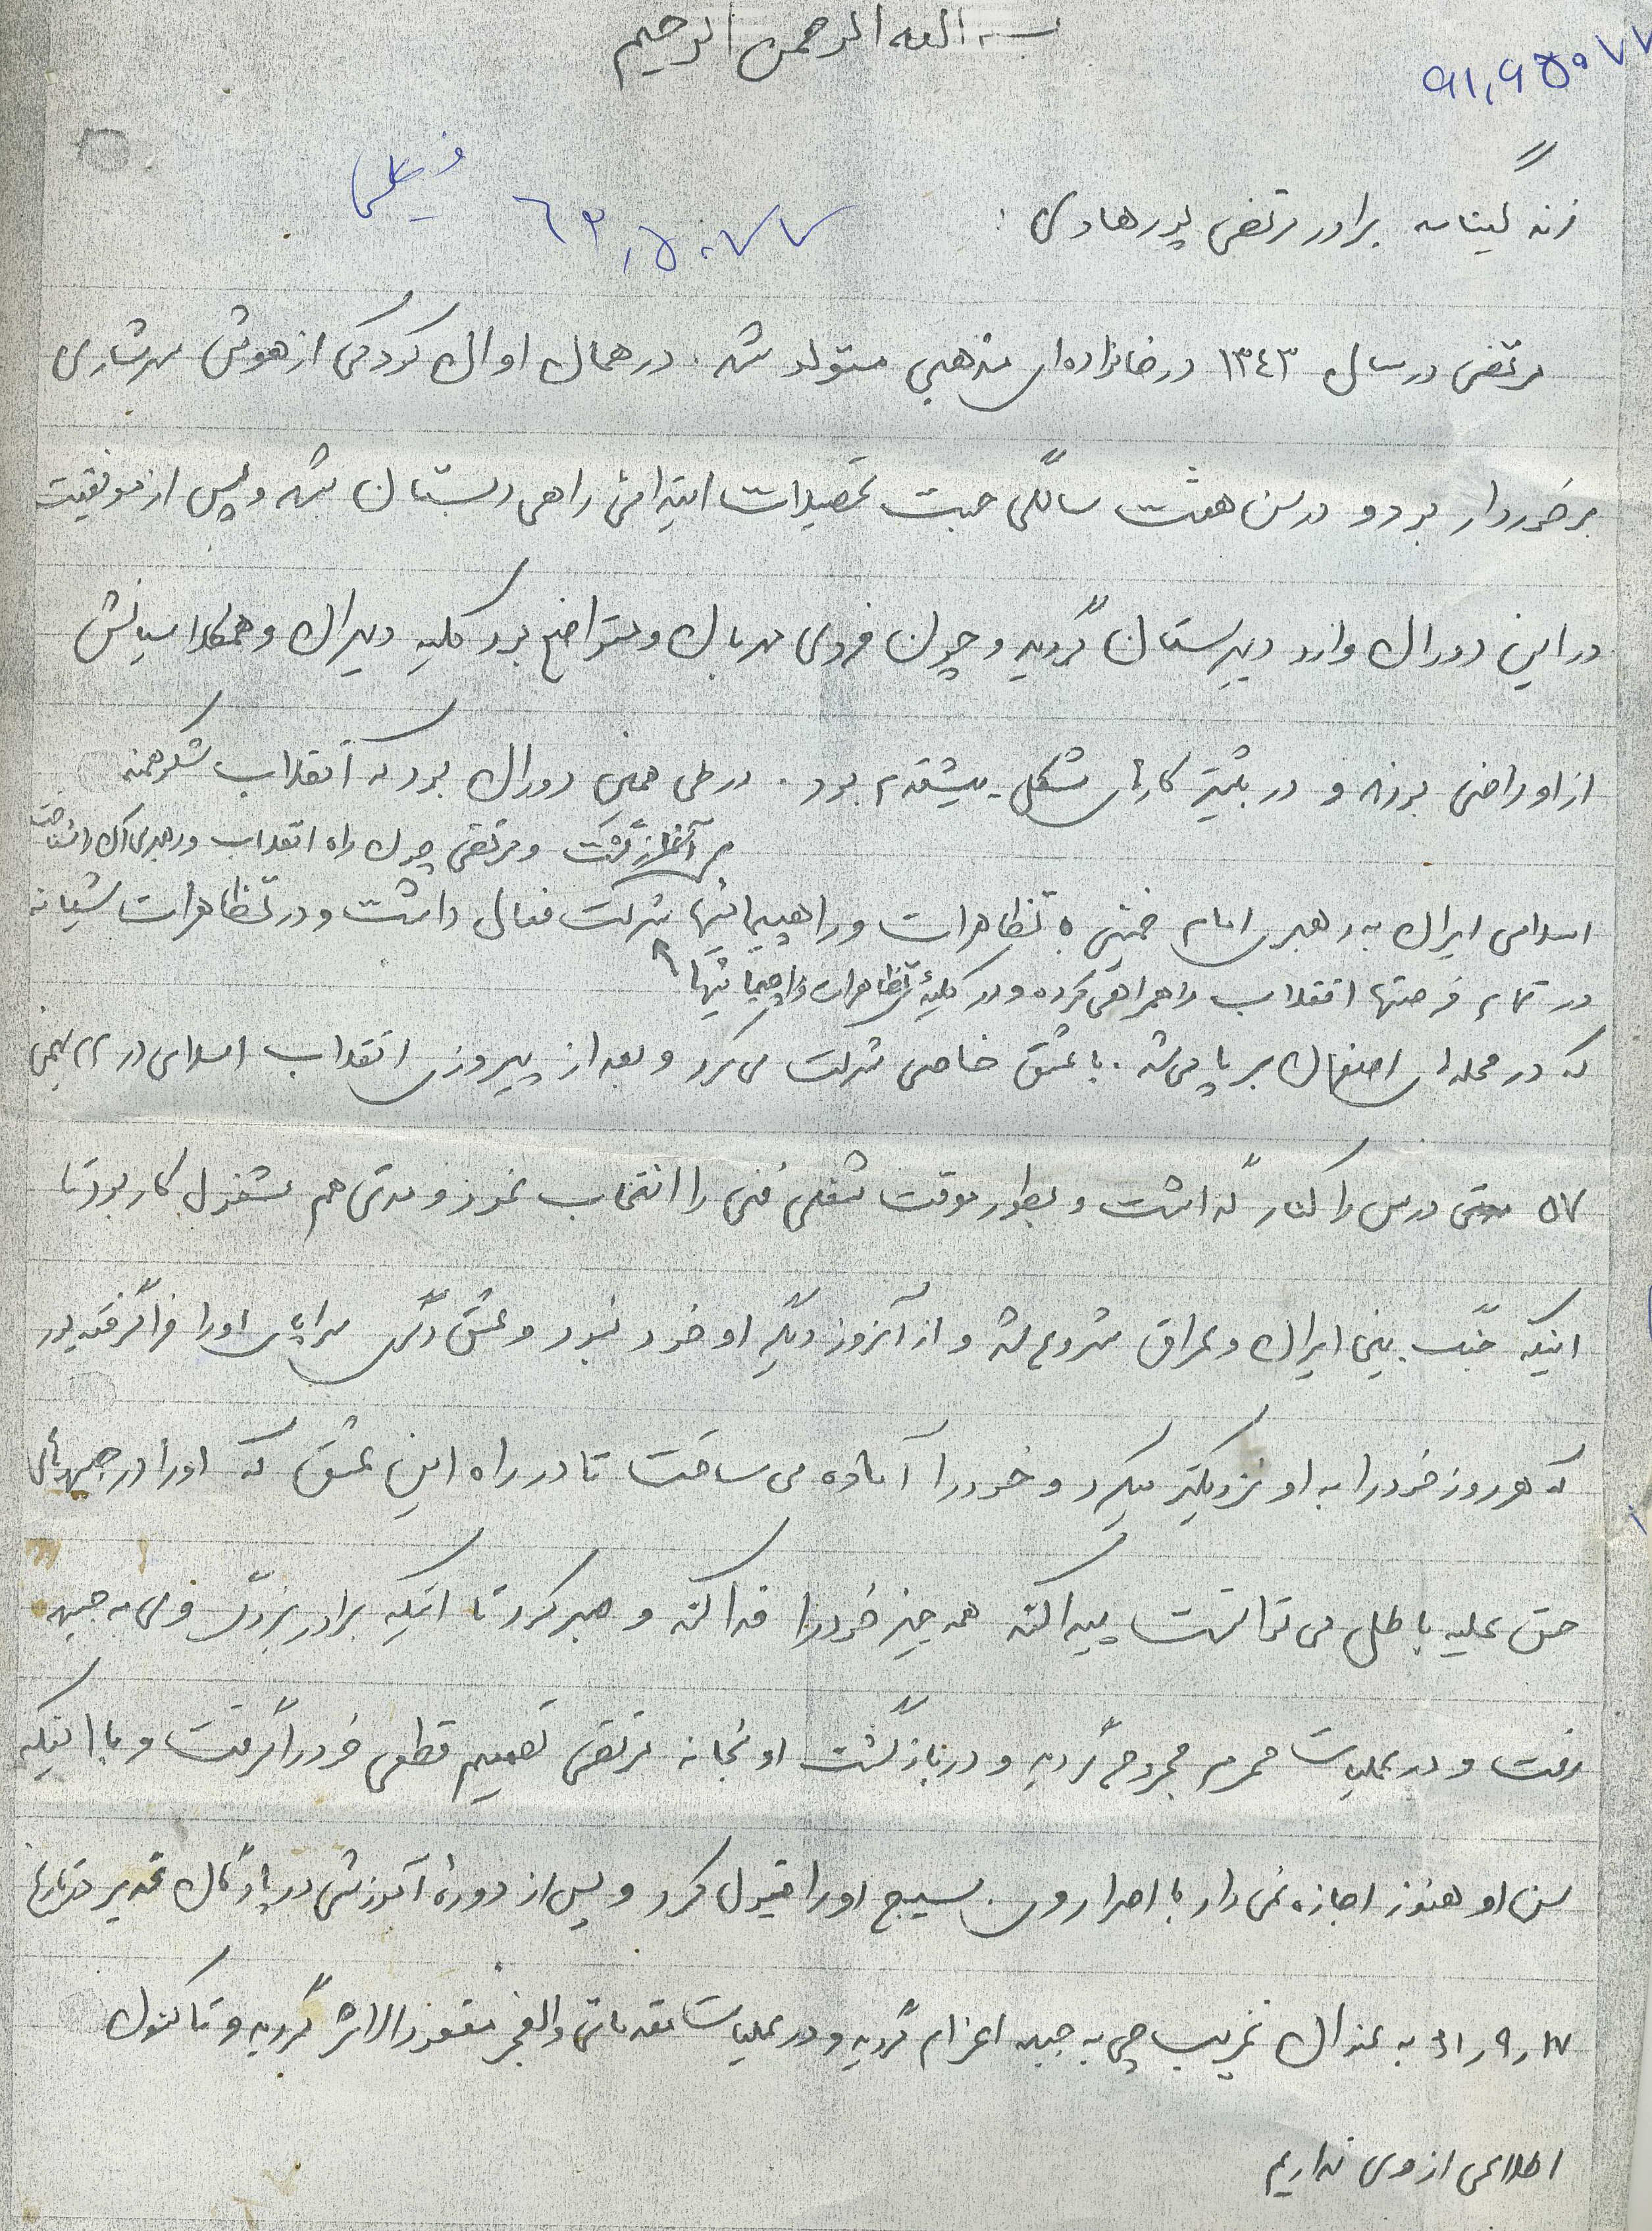 بسم الله الرحمن الرحیم
۹۱,۹۵۰۷۷
۶۳,۵۰۷۷
زندگینامه برادر مرتضی پورهادی :
مرتضی در سال ۱۳۴۳ در خانواده‌ای مذهبی متولد شد . در همان اوان کودکی از هوش سرشاری
برخوردار بود و در سن هشت سالگی جهت تحصیلات ابتدائی راهی دبستان شد و پس از موفقیت
در این دوران وارد دبیرستان گردید و چون فردی مهربان و متواضع بود کلیه دبیران و همکلاسیانش
از او راضی بودند و در بیشتر کارهای مشکل پیشقدم بود . در طی همین دوران بود که انقلاب شکوهمند
اسلامی ایران به رهبری امام خمینی آغاز گشت و مرتضی چون راه انقلاب و رهبری آن را شناخت
در تمام فرصتها انقلاب را همراهی کرده و در کلیهٔ تظاهرات و راهپیمائیها
تظاهرات و راهپیمائیها شرکت فعال داشت و در تظاهرات شبانه
که در محله‌ای اصفهان برپا می‌شد . با عشق خاصی شرکت می‌کرد و بعد از پیروزی انقلاب اسلامی در ۲۲ بهمن
۵۷ مدتی درس را کنار گذاشت و بطور موقت شغلی فنی را انتخاب نمود و مدتی هم مشغول کار بود تا
اینکه جنگ بین ایران و عراق شروع شد و از آنروز دیگر او خود نبود و عشق دگری سراپای او را فرا گرفته بود
که هر روز خود را به او نزدیکتر میکرد و خود را آماده می‌ساخت تا در راه این عشق که او را در جبهه‌های
حق علیه باطل می‌توانست پیدا کند همه چیز خود را فدا کند و صبر کرد تا اینکه برادر بزرگ وی به جبهه
رفت و در عملیات محرم مجروح گردید و در بازگشت او بخانه مرتضی تصمیم قطعی خود را گرفت و با اینکه
سن او هنوز اجازه نمی‌داد با اصرار وی بسیج او را قبول کرد و پس از دورهٔ آموزشی در پادگان غدیر در تاریخ
۶۱٫۹٫۱۷ به عنوان تخریب چی به جبهه اعزام گردید و در عملیات مقدماتی والفجر مفقودالاثر گردید و تا کنون
اطلاعی از وی نداریم